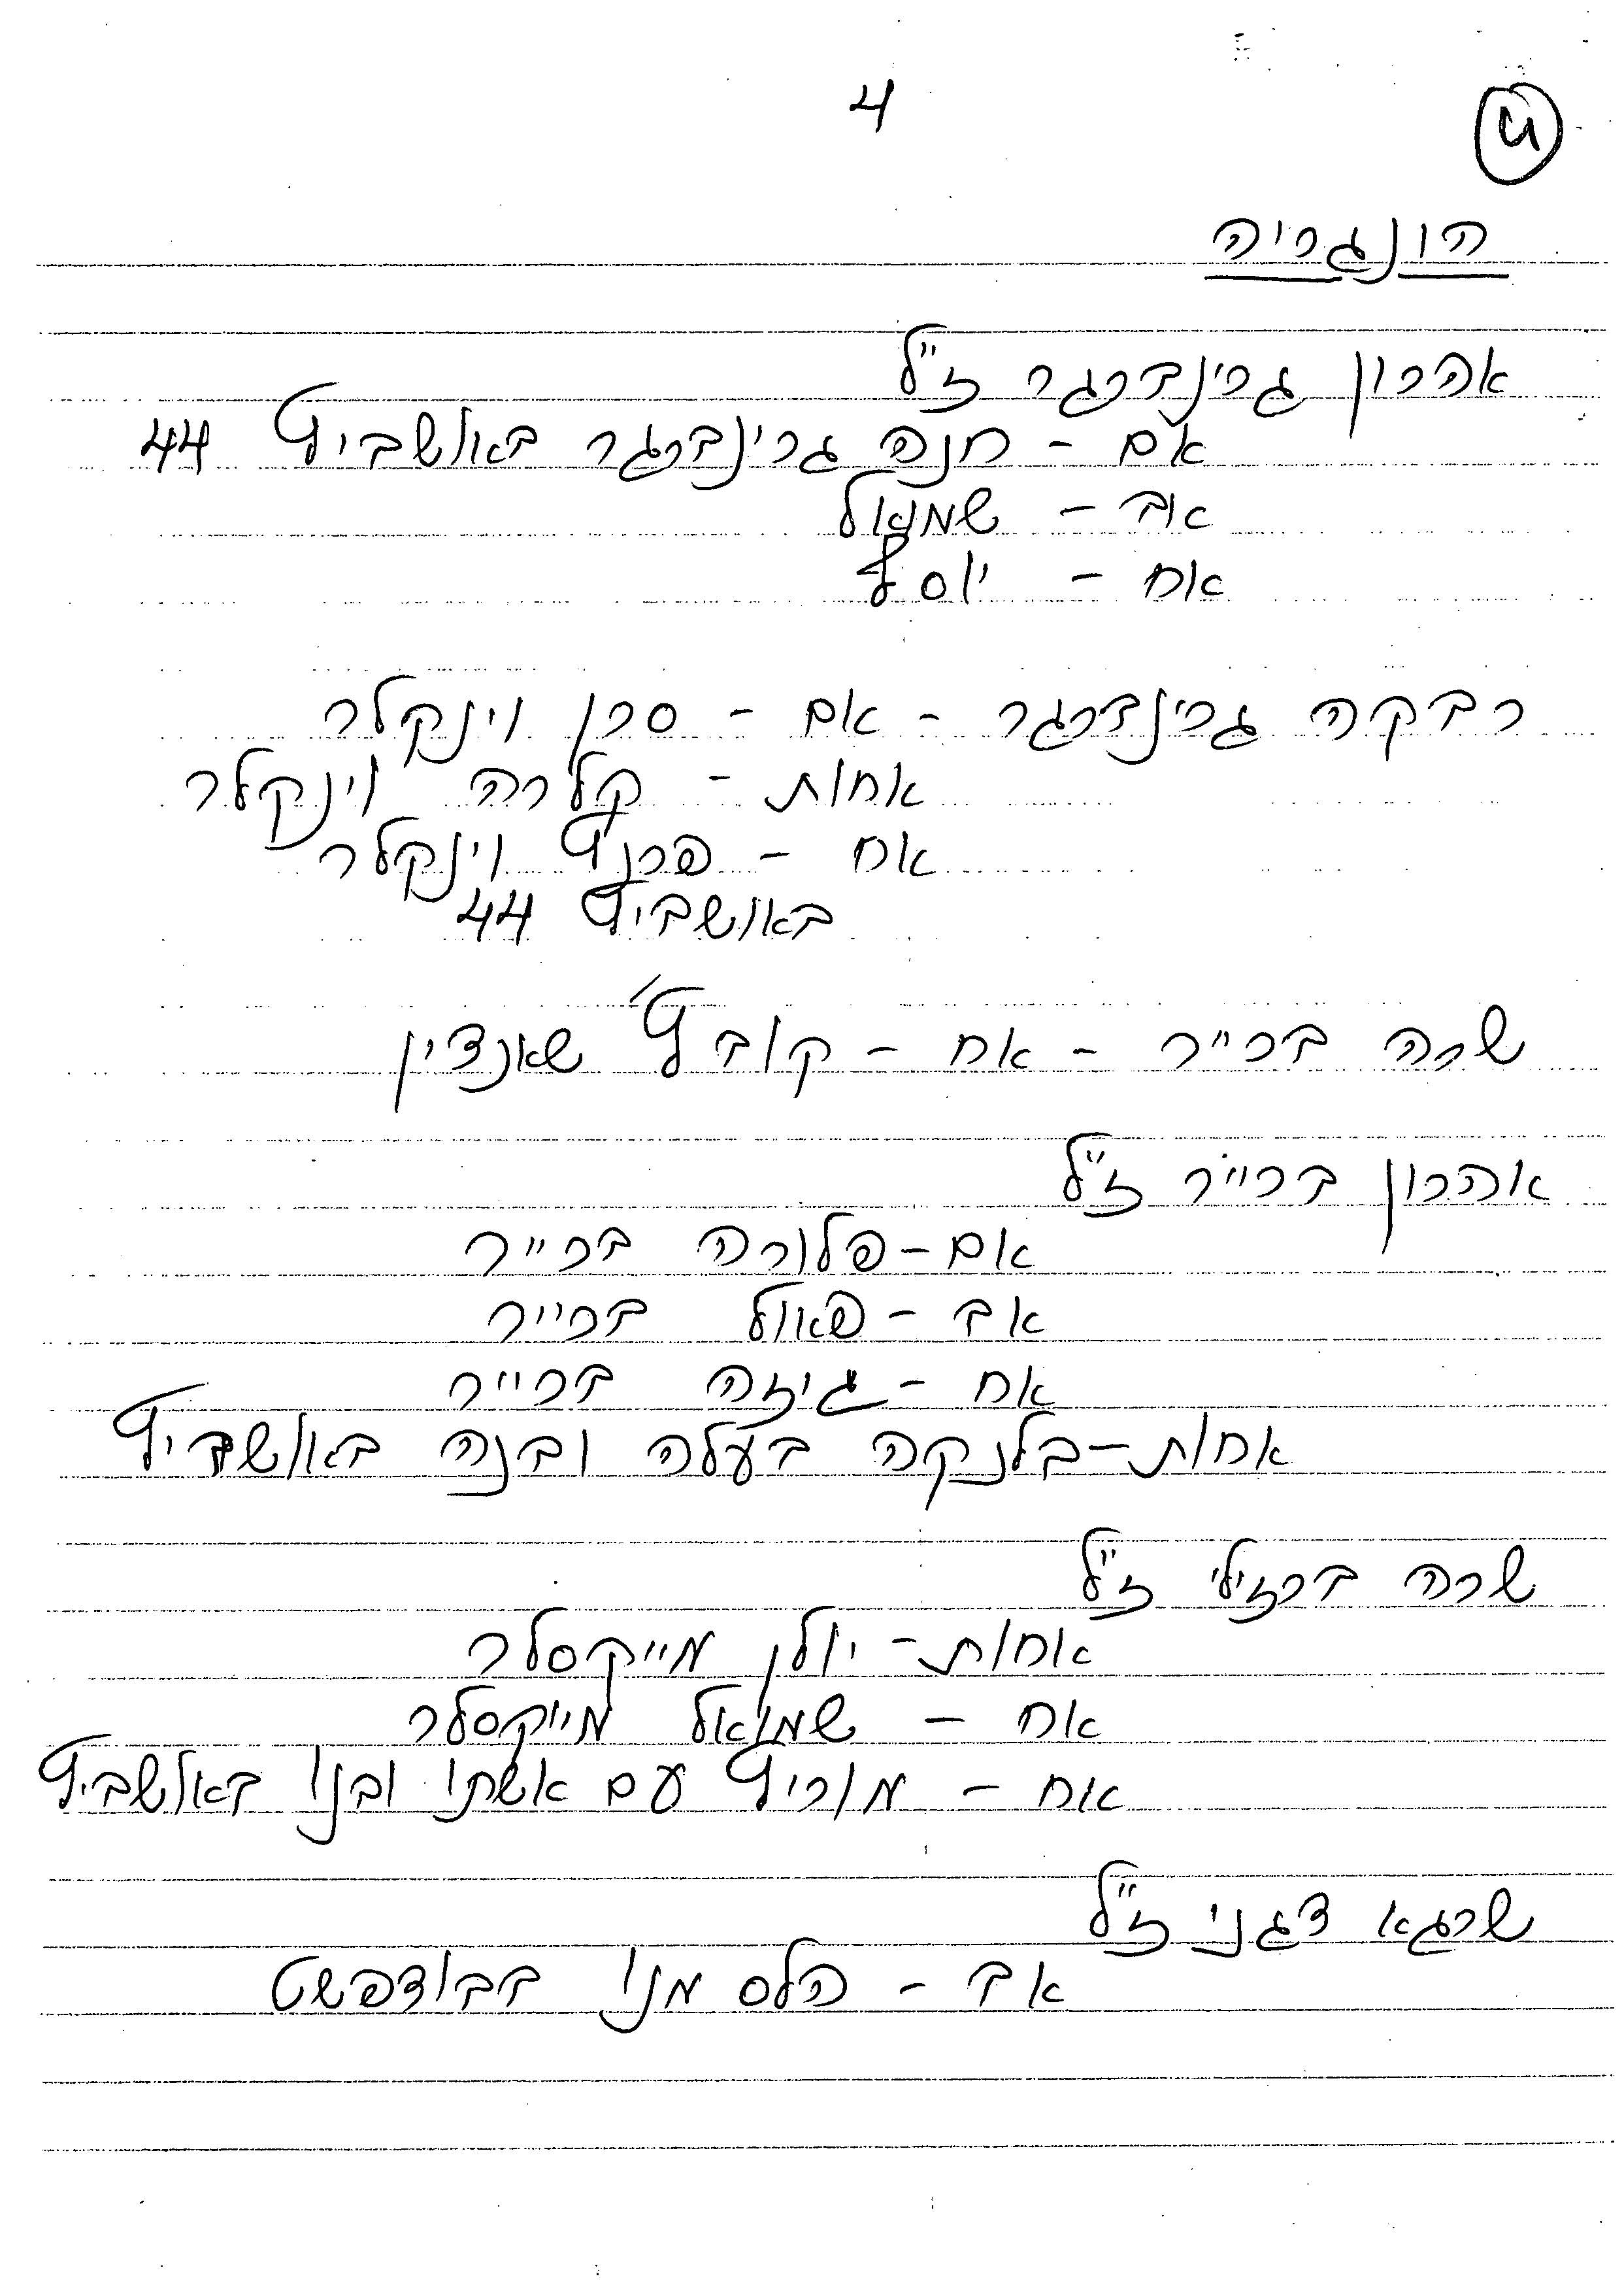 4
4
הונגריה
אהרון גרינברגר ז"ל
אם - חנה גרינברגר באושביץ 44
אב - שמואל
אח - יוסף
רבקה גרינברגר - אם - סרן וינקלר
אחות - קלרה וינקלר
אח - פרנץ וינקלר
באושביץ 44
שרה ברייר - אח - קובץ' שאנדין
אהרון ברייר ז"ל
אם - פלורה ברייר
אב - פאול ברייר
אח - גיזה ברייר
אחות - בלנקה בעלה ובנה באושביץ
שרה ברזילי ז"ל
אחות - יולן מייקסלר
אח - שמואל מייקסלר
אח - מוריץ עם אשתו ובנו באושביץ
שרגא דגני ז"ל
אב - הלס מנו בבודפשט